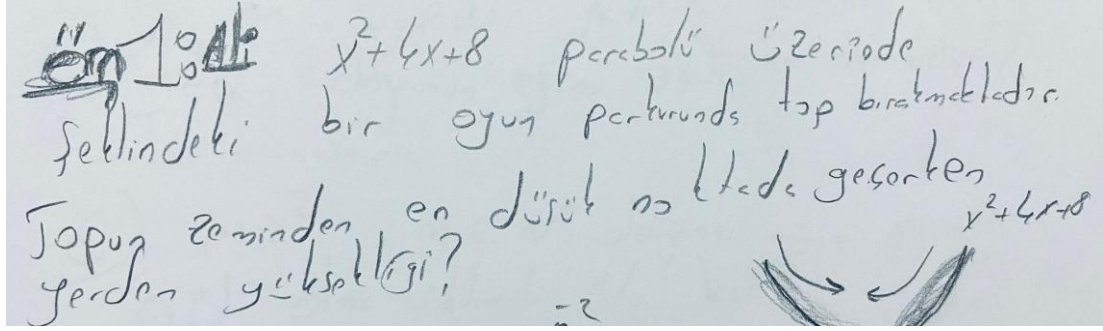 Örn 1: Ali x²+4x+8 parabolü üzeriode
Şeklindeki bir oyun parkurunda top bırakmaktadır.
Topun zeminden en düşük noktada geçerken
yerden yüksekliği?
x²+4x+8